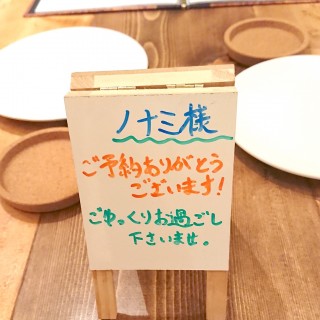 ノナミ様
ご予約ありがとう
ございます!
ごゆっくりお過ごし
下さいませ。